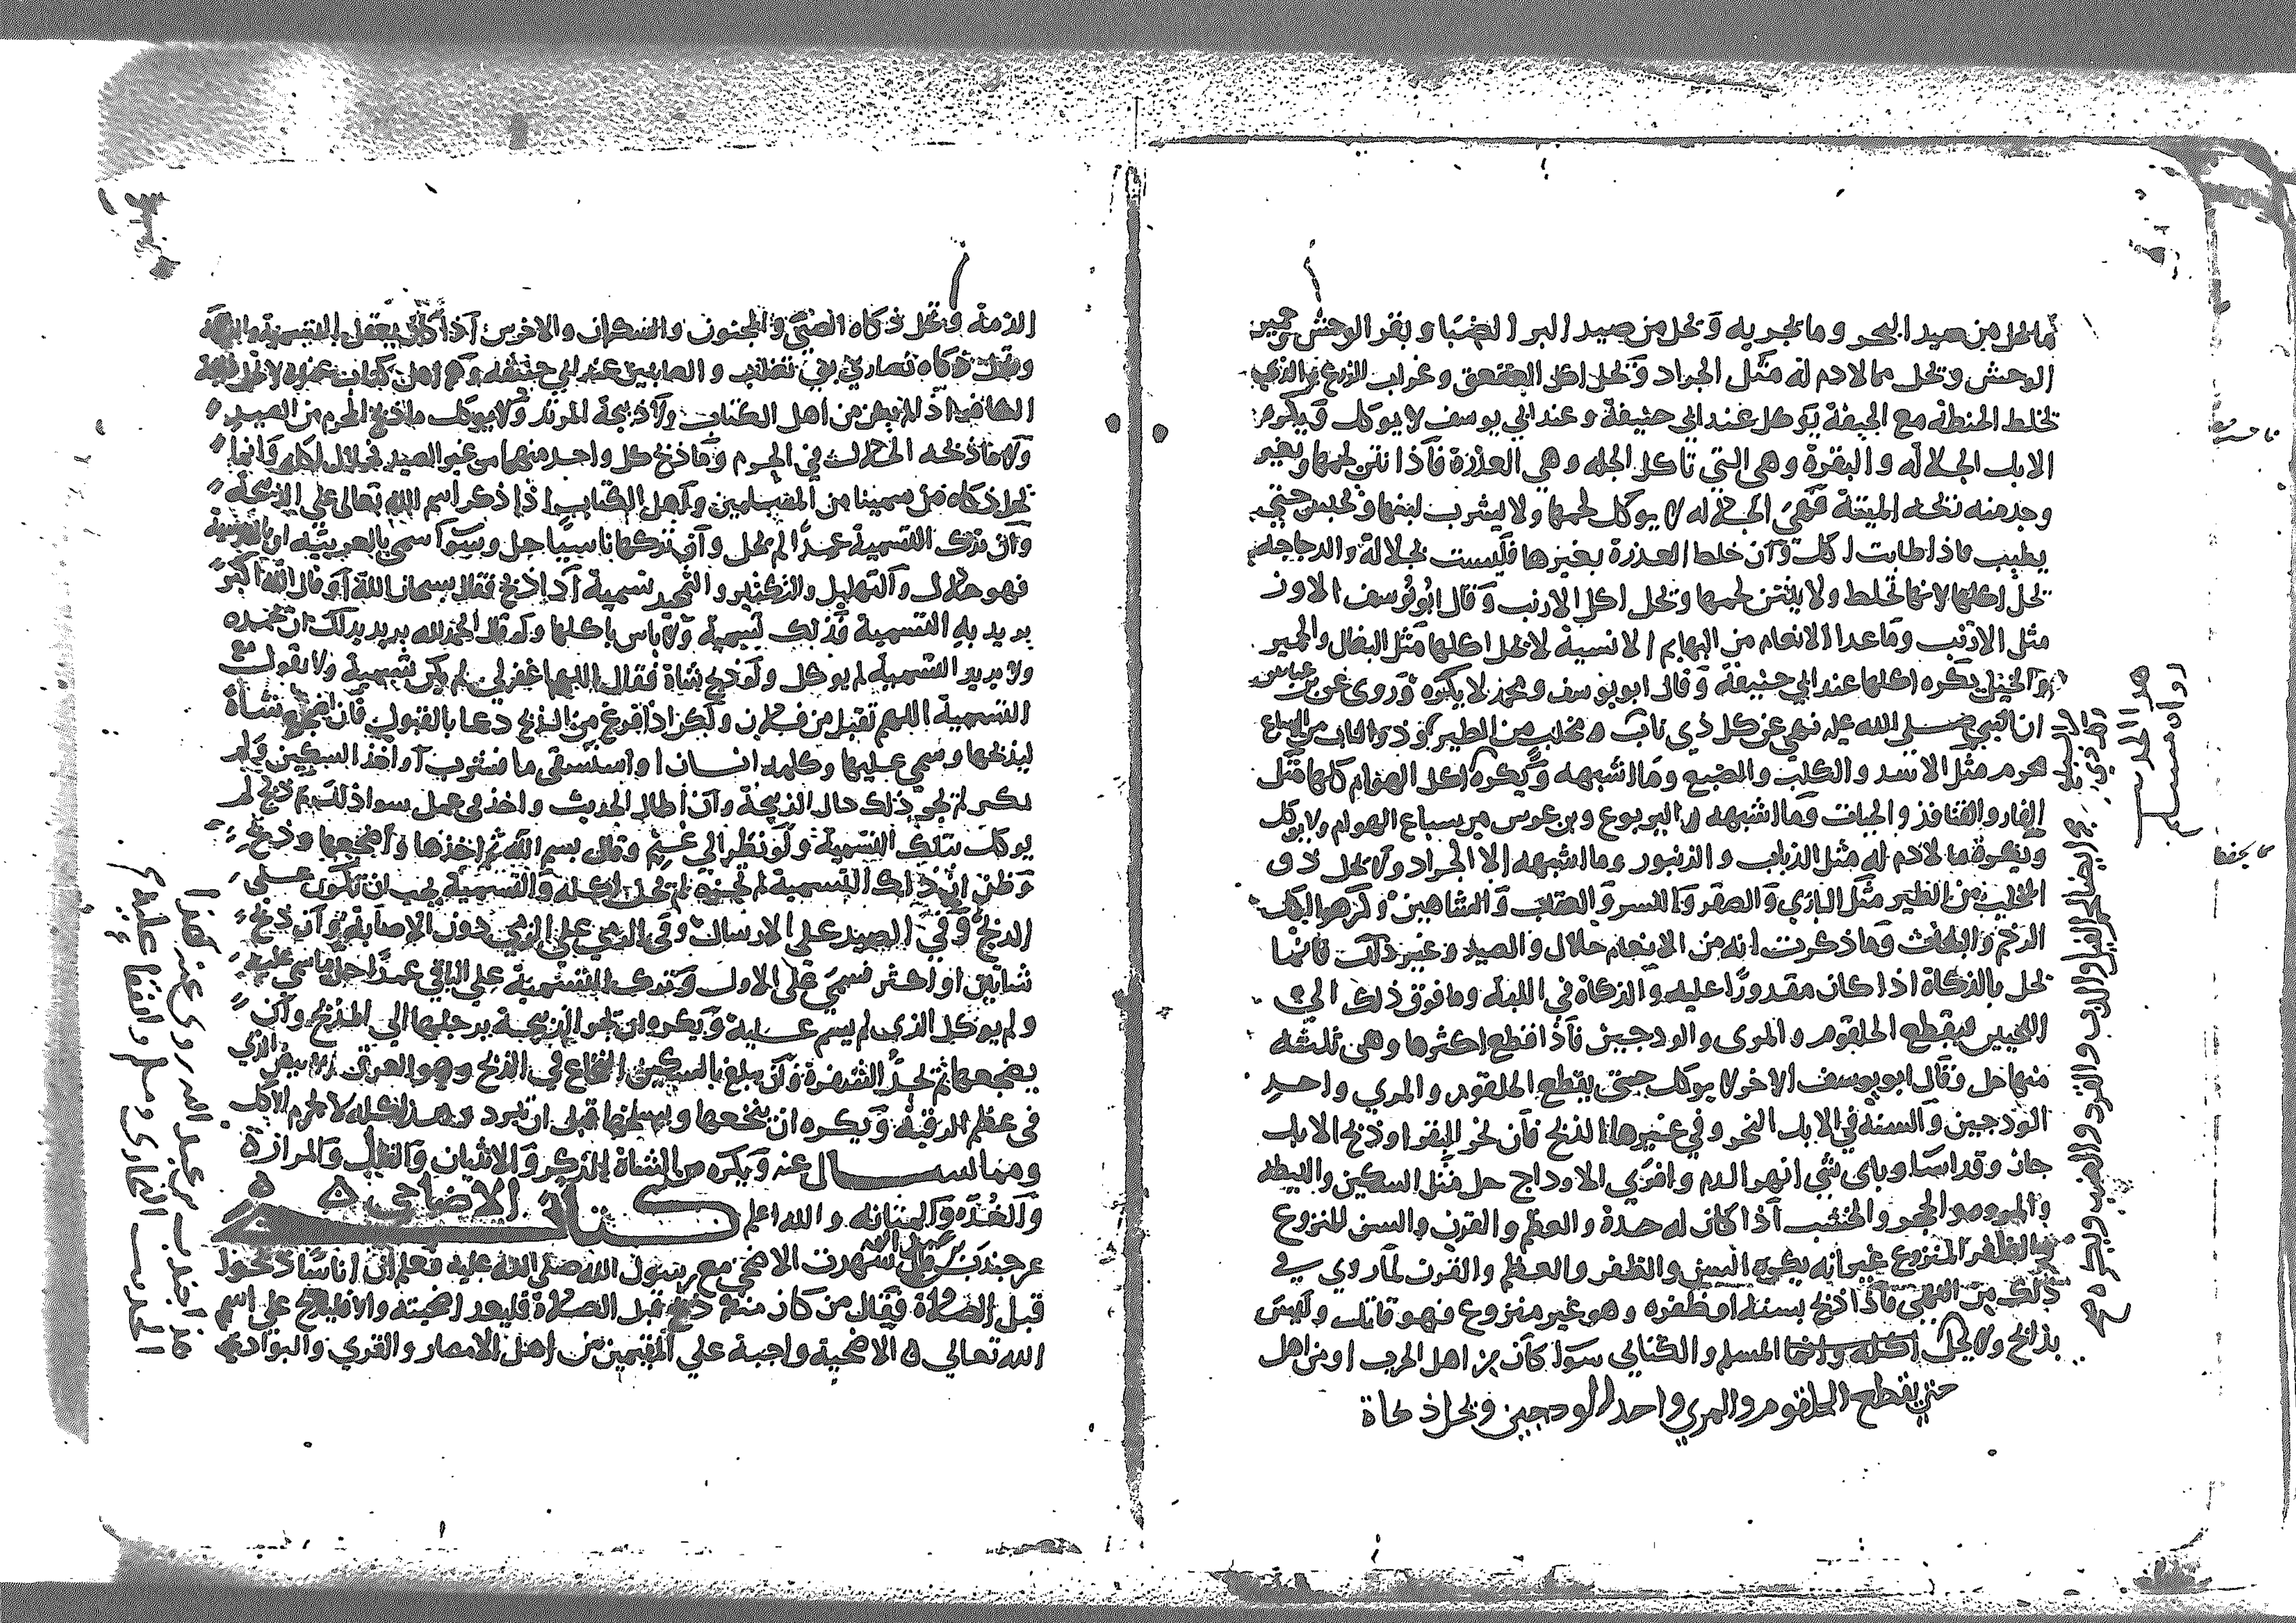 مما يحل من صيد البحر وما يجري به وتحل من صيد البر الضبا وبقر الوحش حمير
الوحش وتحل مما لا دم له مثل الجراد وتحل اكل العقعق وغراب الزرع والذي
تخلط الحنطة مع الجيفة يوكل عند ابي حنيفة وعند ابي يوسف لا يوكل ويكره
الابل الجلاله والبقرة وهي التي تاكل الجله وهي العذرة فاذا نتن لحمها وتغير
وجد منه نخه الميتة فهي الجلاله لا يوكل لحمها ولا يشرب لبنها وتحبس حتى
يطيب فاذا طابت اكلت وان خلط العذرة بغيرها فليست بجلالة والدجاجه
تحل اكلها لانها تخلط ولا ينتن لحمها وتحل اكل الارنب وقال ابو يوسف الاوز
مثل الارنب وما عدا الانعام من البهايم الانسية لا يحل اكلها مثل البغال والحمير
والخيل يكره اكلها عند ابي حنيفة وقال ابو يوسف ومحمد لا يكره وروى عن بن عباس
ان النبي صلى الله عليه نهى عن كل ذي ناب ومخلب من الطير فذو الناب من السباع
محرم مثل الاسد والكلب والضبع وما اشبهه ويكره اكل الهوام كلها مثل
الفار والقنافذ والحيات وما اشبهه واليربوع وبن عرس من سباع الهوام ولا يوكل
ويكره ما لا دم له مثل الذباب والزنبور وما اشبهه الا الجراد ولا يحل ذي
المخلب من الطير مثل البازي والصقر والنسر والعقاب والشاهين وكرهوا اكل
الرخم والبغاث وما ذكرت انه من الانعام حلال والصيد وغير ذلك فانما
تحل بالذكاة اذا كان مقدورا عليه والذكاة في اللبة وما فوق ذلك الى
اللحيين فيقطع الحلقوم والمرى والودجين فاذا قطع اكثرها وهي ثلثه
منها حل وقال ابو يوسف الاخر لا يوكل حتى يقطع الحلقوم والمري واحد
الودجين والسنة في الابل النحر وفي غيرها الذبح فان نحر البقر او ذبح الابل
جاز وقد اسا وباى شي انهر الدم وافرى الاوداج حل مثل السكين والليطة
والمروه والحجر والخشب اذا كان له حدة والعظم والقرن والسن المنزوع
والظفر المنزوع غير انه يكره السن والظفر والعظم والقرن لما روي في
ذلك من النهي فاذا ذبح بسنه او ظفره وهو غير منزوع فهو قاتل وليس
بذابح ولا يحل اكله وانما المسلم والكتابي سوا كان من اهل الحرب او من اهل
حتى يقطع الحلقوم والمري واحد الودجين وتحل ذكاة
الحديث
رواه مسلم
الذمة وتحل ذكاه الصبي والمجنون والسكران والاخرس اذا كان يعقل التسمية
وتحل ذكاه نصارى بني تغلب والصابين عند ابي حنيفه وهم اهل كتاب عنده لا تحل ذبيحة
اذ لم يكن من اهل الكتاب ولا ذبيحة المرتد ولا يوكل ما ذبح المحرم من الصيد
ولا ما ذبحه الحلال في الحرم وما ذبح كل واحد منهما من غير الصيد فحلال اكله وانما
تجوز ذكاه من سمينا من المسلمين واهل الكتاب اذا ذكر اسم الله تعالى على الذبيحة
وان ترك التسمية عمدا لم تحل وان تركها ناسيا حل وسوا سمى بالعربيه او بالفارسية
فهو حلال والتهليل والتكبير والتحميد تسمية اذا ذبح فقال سبحان الله او قال الله اكبر
يريد به التسمية فذلك تسمية ولا باس باكلها ولو قال الحمد لله يريد بذلك ان تحمده
ولا يريد التسمية لم يوكل ولو ذبح شاة فقال اللهم اغفر لي لم يكن تسمية ولا يقول مع
التسمية اللهم تقبل من فلان ولكن اذا فرغ من الذبح دعا بالقبول فان اضجع شاة
ليذبحها وسمى عليها وكلمه انسان او استسقى ما فشرب او اخذ السكين ولم
يكن لم تجي ذلك حال الذبيحة وان اطال الحديث واخذ في عمل سوا ذلك ثم ذبح لم
يوكل بتلك التسمية ولو نظر الى غنم وقال بسم الله ثم اخذها واضجعها وذبح
وظن ان ذلك التسمية تجزيه لم تحل اكله والتسمية يجب ان تكون على
الذبح وفي الصيد على الارسال وفي الرمي على الرمي دون الاصابة وان ذبح
شاتين او اكثر فسمى على الاول وترك التسمية على الباقي عمدا حل ما سمى عليه
ولم يوكل الذى لم يسم عليه ويكره ان تجر الذبيحة برجلها الى المذبح وان
يضجعها ثم تحد الشفرة وان يبلغ بالسكين النخاع في الذبح وهو العرق الابيض الذي
في عظم الرقبة ويكره ان ينخعها ويسلخها قبل ان تبرد وهذا كله لا يحرم الاكل
ومما يسال عنه ويكره من الشاة الذكر والانثيان والقبل والمرارة
والغده والمثانه والله اعلم كتاب الاضاحي
عن جندب بن عبد الله قال شهدت الاضحى مع رسول الله صلى الله عليه فعلم ان اناسا ذبحوا
قبل الصلاة فقال من كان منكم ذبح قبل الصلاة فليعد اضحيته والا فليذبح على اسم
الله تعالى الاضحية واجبة على المقيمين من اهل الامصار والقرى والبوادي
الحديث البخاري ومسلم واتفقا عليه